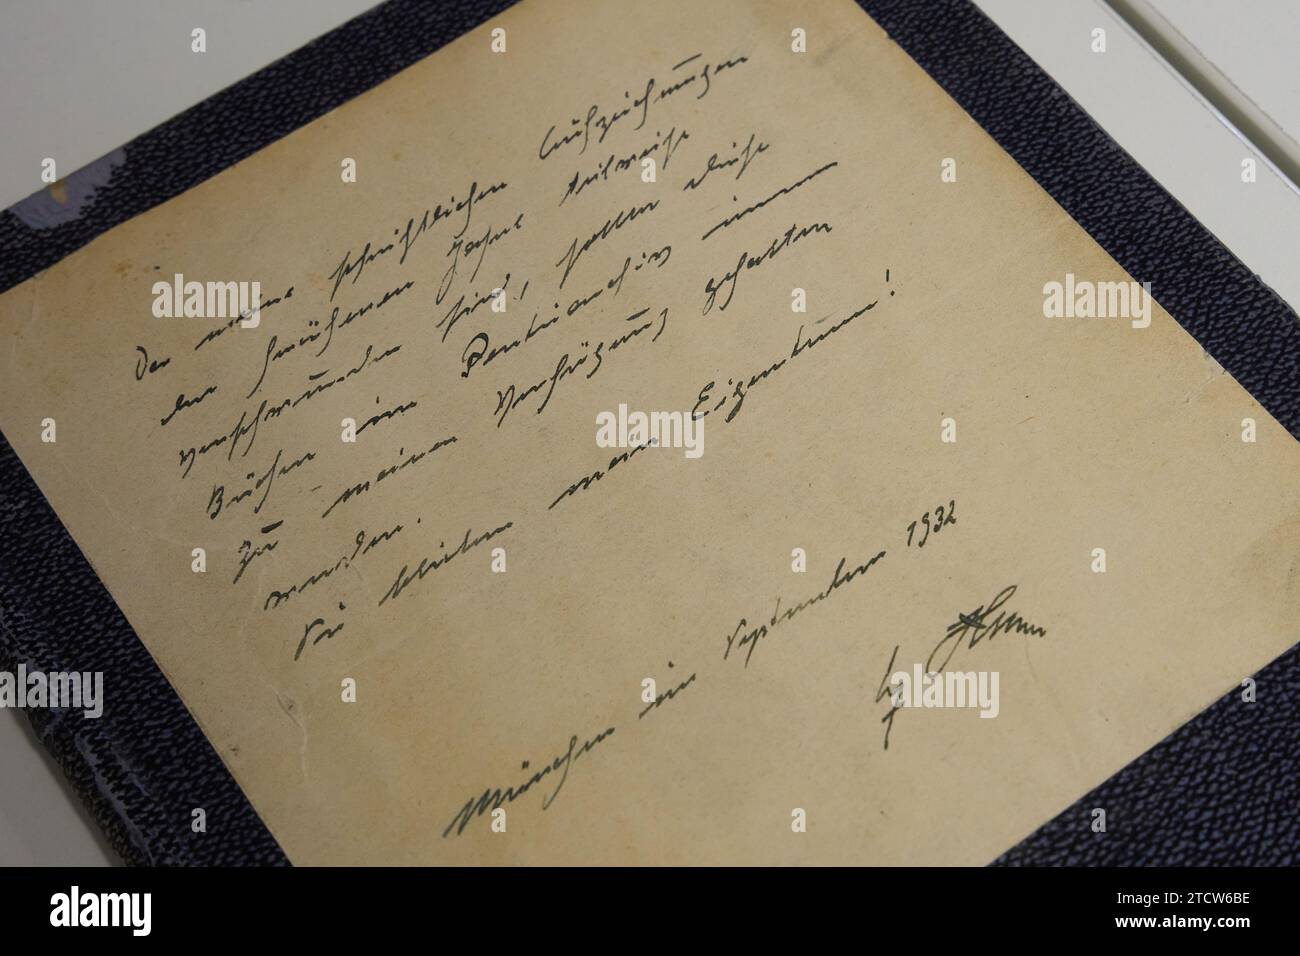 Da meine schriftlichen Aufzeichnungen
der früheren Jahre teilweise
verschwunden sind, sollen diese
Bücher im Parteiarchiv immer
zu meiner Verfügung gehalten
werden.
Sie bleiben mein Eigentum!
München im September 1932
alamy
Image ID: 2TCW6BE
www.alamy.com